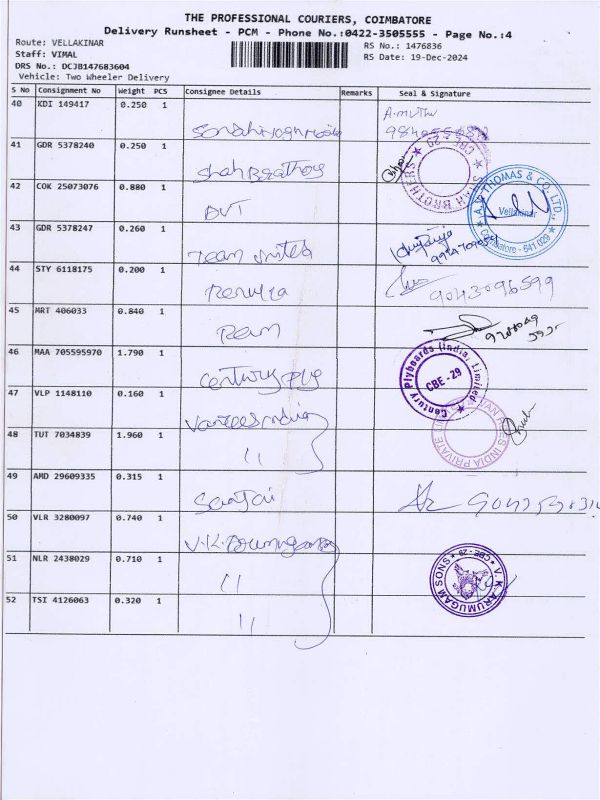 THE PROFESSIONAL COURIERS, COIMBATORE
Delivery Runsheet - PCM - Phone No.:0422-3505555 - Page No.:4
Route: VELLAKINAR
RS No.: 1476836
Staff: VIMAL
RS Date: 19-Dec-2024
DRS No.: DCJB147683604
Vehicle: Two Wheeler Delivery
S No Consignment No Weight PCS Consignee Details Remarks Seal & Signature
40 KDI 149417 0.250 1
41 GDR 5378240 0.250 1 Shah Brathors
SHAH BROTHERS CBE-29
42 COK 25073076 0.880 1 DVT
A.V. THOMAS & CO. LTD.,
Vellakinar
Coimbatore - 641 029
43 GDR 5378247 0.260 1 Team united
44 STY 6118175 0.200 1 9043096599
45 MRT 406033 0.840 1
46 MAA 705595970 1.790 1 Century ply
Century Plyboards (India) Limited
CBE-29
47 VLP 1148110 0.160 1 Vanrees india
VAN REES INDIA PRIVATE
48 TUT 7034839 1.960 1 "
49 AMD 29609335 0.315 1
50 VLR 3280097 0.740 1 V.K. Arumugam
51 NLR 2438029 0.710 1 "
V.K. ARUMUGAM SONS CBE-29
52 TSI 4126063 0.320 1 "